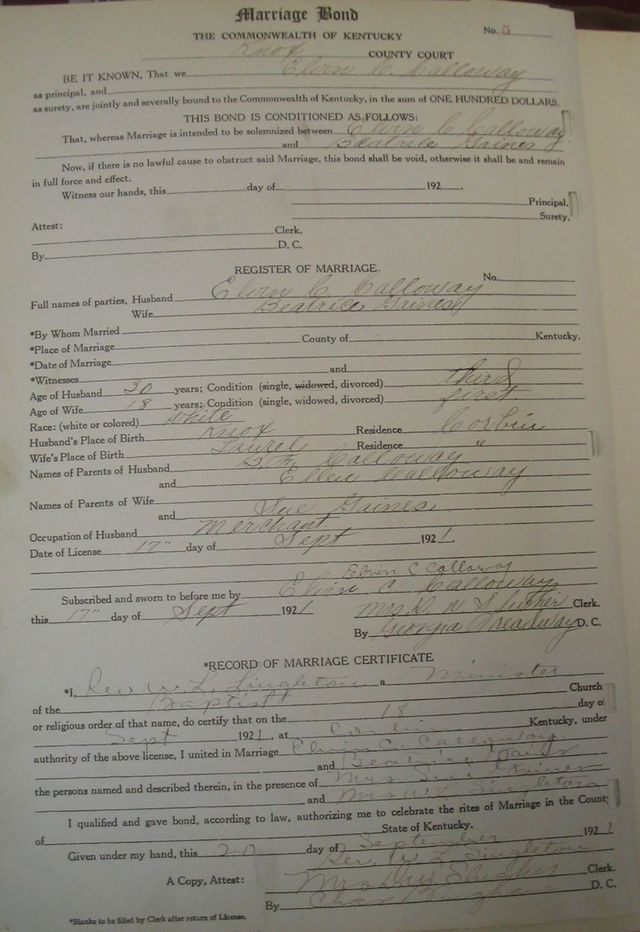 Marriage Bond
No. 5
THE COMMONWEALTH OF KENTUCKY
Knox COUNTY COURT
BE IT KNOWN, That we Elvin C. Calloway
as principal, and
as surety, are jointly and severally bound to the Commonwealth of Kentucky, in the sum of ONE HUNDRED DOLLARS.
THIS BOND IS CONDITIONED AS FOLLOWS:
That, whereas Marriage is intended to be solemnized between Elvin C Calloway
and Beatrice Gaines
Now, if there is no lawful cause to obstruct said Marriage, this bond shall be void, otherwise it shall be and remain
in full force and effect.
Witness our hands, this day of 192 .
Principal.
Surety.
Attest: Clerk.
By D. C.
REGISTER OF MARRIAGE.
No.
Full names of parties, Husband Elvin C. Calloway
Wife Beatrice Gaines
*By Whom Married
*Place of Marriage County of Kentucky.
*Date of Marriage
*Witnesses and
Age of Husband 30 years; Condition (single, widowed, divorced) third
Age of Wife 18 years; Condition (single, widowed, divorced) first
Race: (white or colored) white
Husband's Place of Birth Knox Residence Corbin
Wife's Place of Birth Laurel Residence "
Names of Parents of Husband Calloway
and Ellen Calloway
Names of Parents of Wife
and Sue Gaines
Occupation of Husband Merchant
Date of License 17" day of Sept 1921.
Elvin C Calloway
Subscribed and sworn to before me by Elvin C. Calloway
this 17" day of Sept 1921 Mrs. Clerk.
By Georgia Treadway D. C.
*RECORD OF MARRIAGE CERTIFICATE
*I, Rev W. L. Singleton a Minister
of the Baptist Church
or religious order of that name, do certify that on the 18 day of
Sept 1921, at Corbin Kentucky, under
authority of the above license, I united in Marriage Elvin C. Calloway
and Beatrice Gaines
the persons named and described therein, in the presence of Mrs
and Mrs W. L. Singleton
I qualified and gave bond, according to law, authorizing me to celebrate the rites of Marriage in the Count
of State of Kentucky.
Given under my hand, this 20 day of September 1921
Rev. W. L. Singleton
A Copy, Attest: Mrs Clerk.
By Chas Bingham D. C.
*Blanks to be filled by Clerk after return of License.